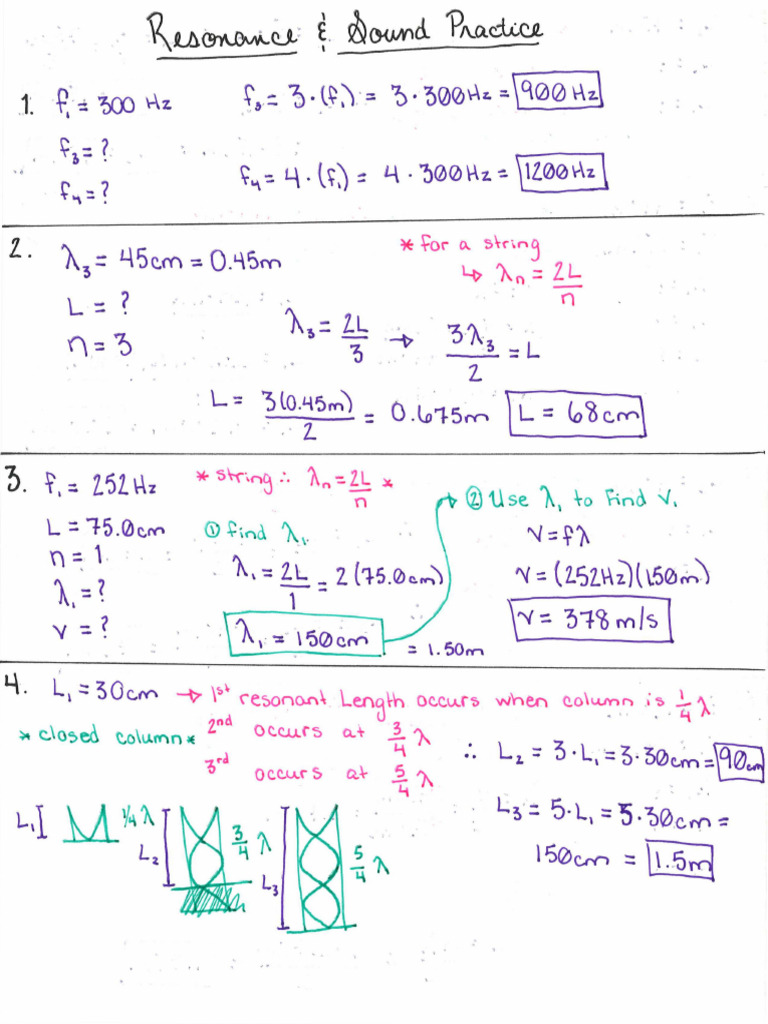 Resonance & Sound Practice
1. f₁ = 300 Hz
f₃ = 3·(f₁) = 3·300Hz = 900 Hz
f₃ = ?
f₄ = ?
f₄ = 4·(f₁) = 4·300Hz = 1200 Hz
2. λ₃ = 45cm = 0.45m
L = ?
n = 3
* for a string
↳ λn = 2L/n
λ₃ = 2L/3 → 3λ₃/2 = L
L = 3(0.45m)/2 = 0.675m L = 68cm
3. f₁ = 252 Hz
L = 75.0cm
n = 1
λ₁ = ?
v = ?
* string ∴ λn = 2L/n *
① find λ₁
λ₁ = 2L/1 = 2(75.0cm)
λ₁ = 150cm = 1.50m
② Use λ₁ to find v.
v = fλ
v = (252Hz)(1.50m)
v = 378 m/s
4. L₁ = 30cm → 1st resonant Length occurs when column is 1/4 λ
* closed column *
2nd occurs at 3/4 λ
3rd occurs at 5/4 λ
∴ L₂ = 3·L₁ = 3·30cm = 90cm
L₃ = 5·L₁ = 5·30cm =
150cm = 1.5m
L₁ 1/4 λ
L₂ 3/4 λ
L₃ 5/4 λ